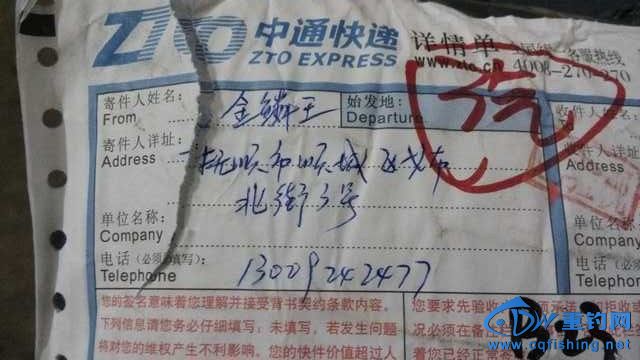 ZTO 中通快递 详情单
ZTO EXPRESS www.zto.cn 4008-270-270
寄件人姓名: 金鳞王 始发地: 收件人姓名:
From Departure
寄件人详址: 抚顺市顺城区戈布 收件人详址:
Address
北街3号
单位名称:
Company
电话(必须填写):
Telephone 13009242477
您的签名意味着您理解并接受背书契约条款内容。 您要求先验收
下列信息请您务必仔细填写;未填写,若发生问题 况必须在备
将对您的维权产生不利影响。您的快件价值超过人 着您已正
重钓网
www.cqfishing.net